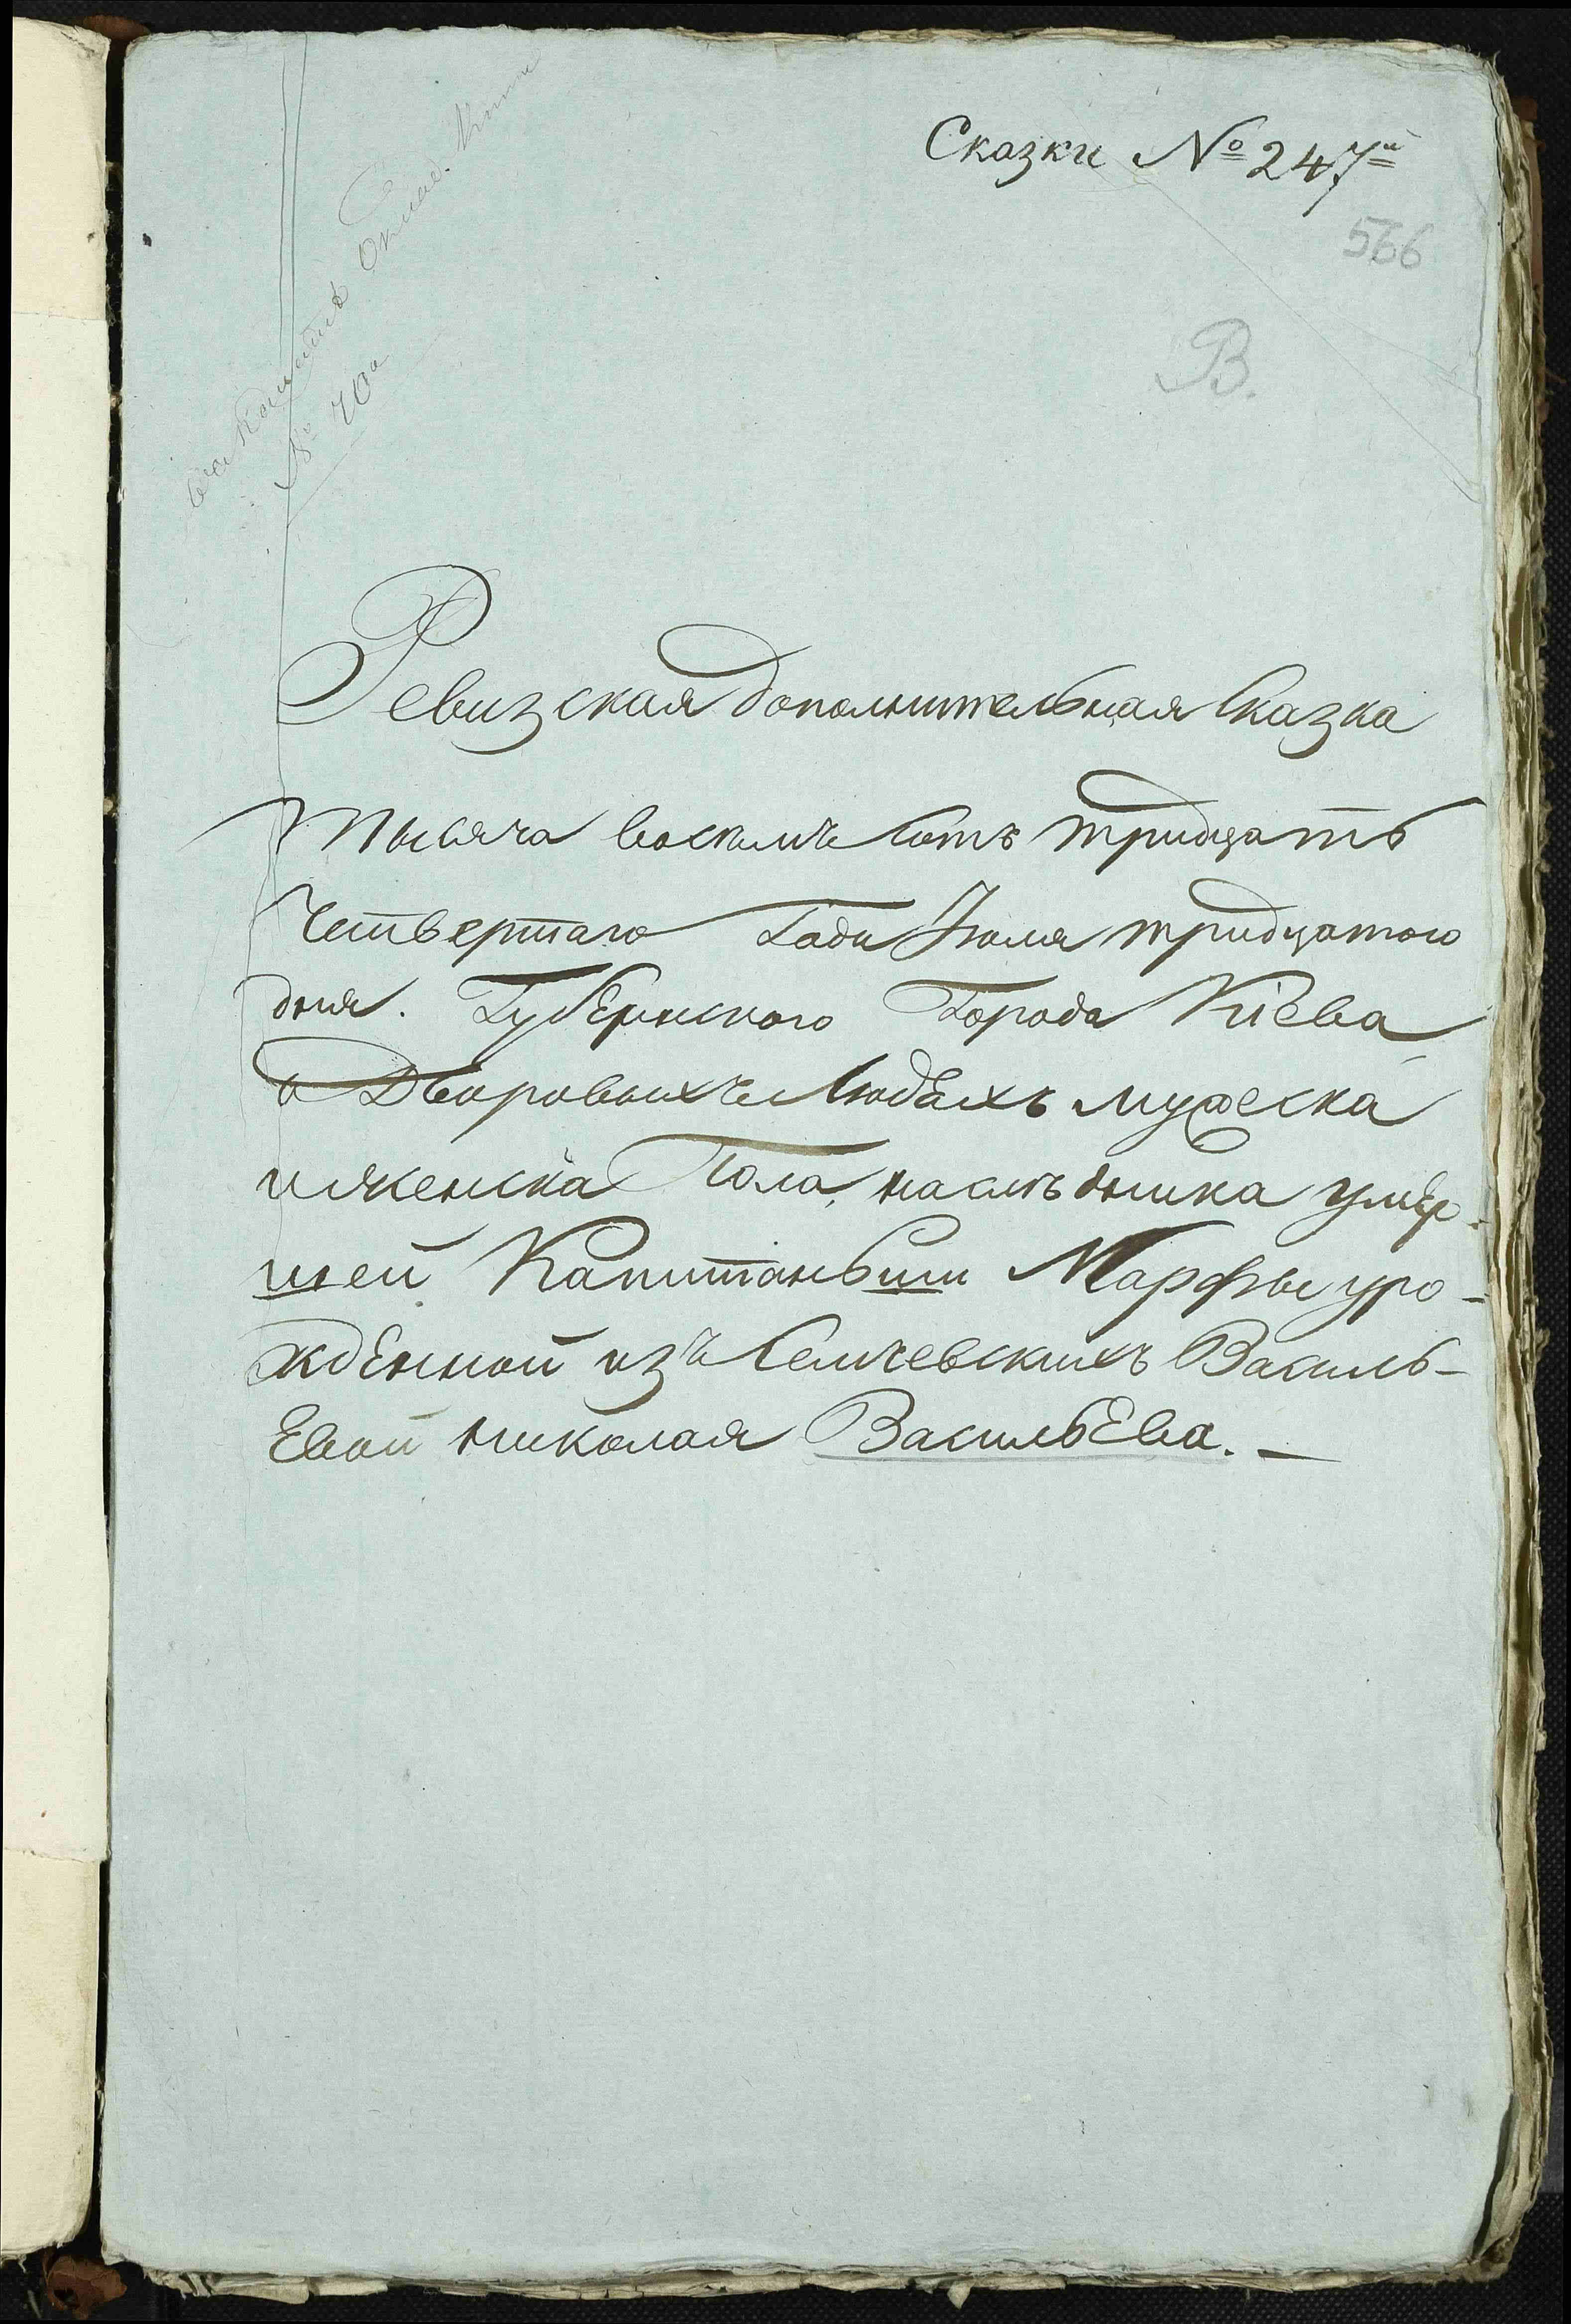 Сказки № 247й
566
В.
№ 70й
Ревизская дополнительная Сказка
Тысяча восемъ сотъ тридцать
Четвертаго Года Іюля тридцатого
дня. Губернского Города Кіева
о Дворовыхъ Людѣхъ мужеска
и женска Пола, наслѣдника умер-
шей Капитаньши Марфы уро-
жденной изъ Семчевскихъ Василь-
Евой николая ВасильЕва. —